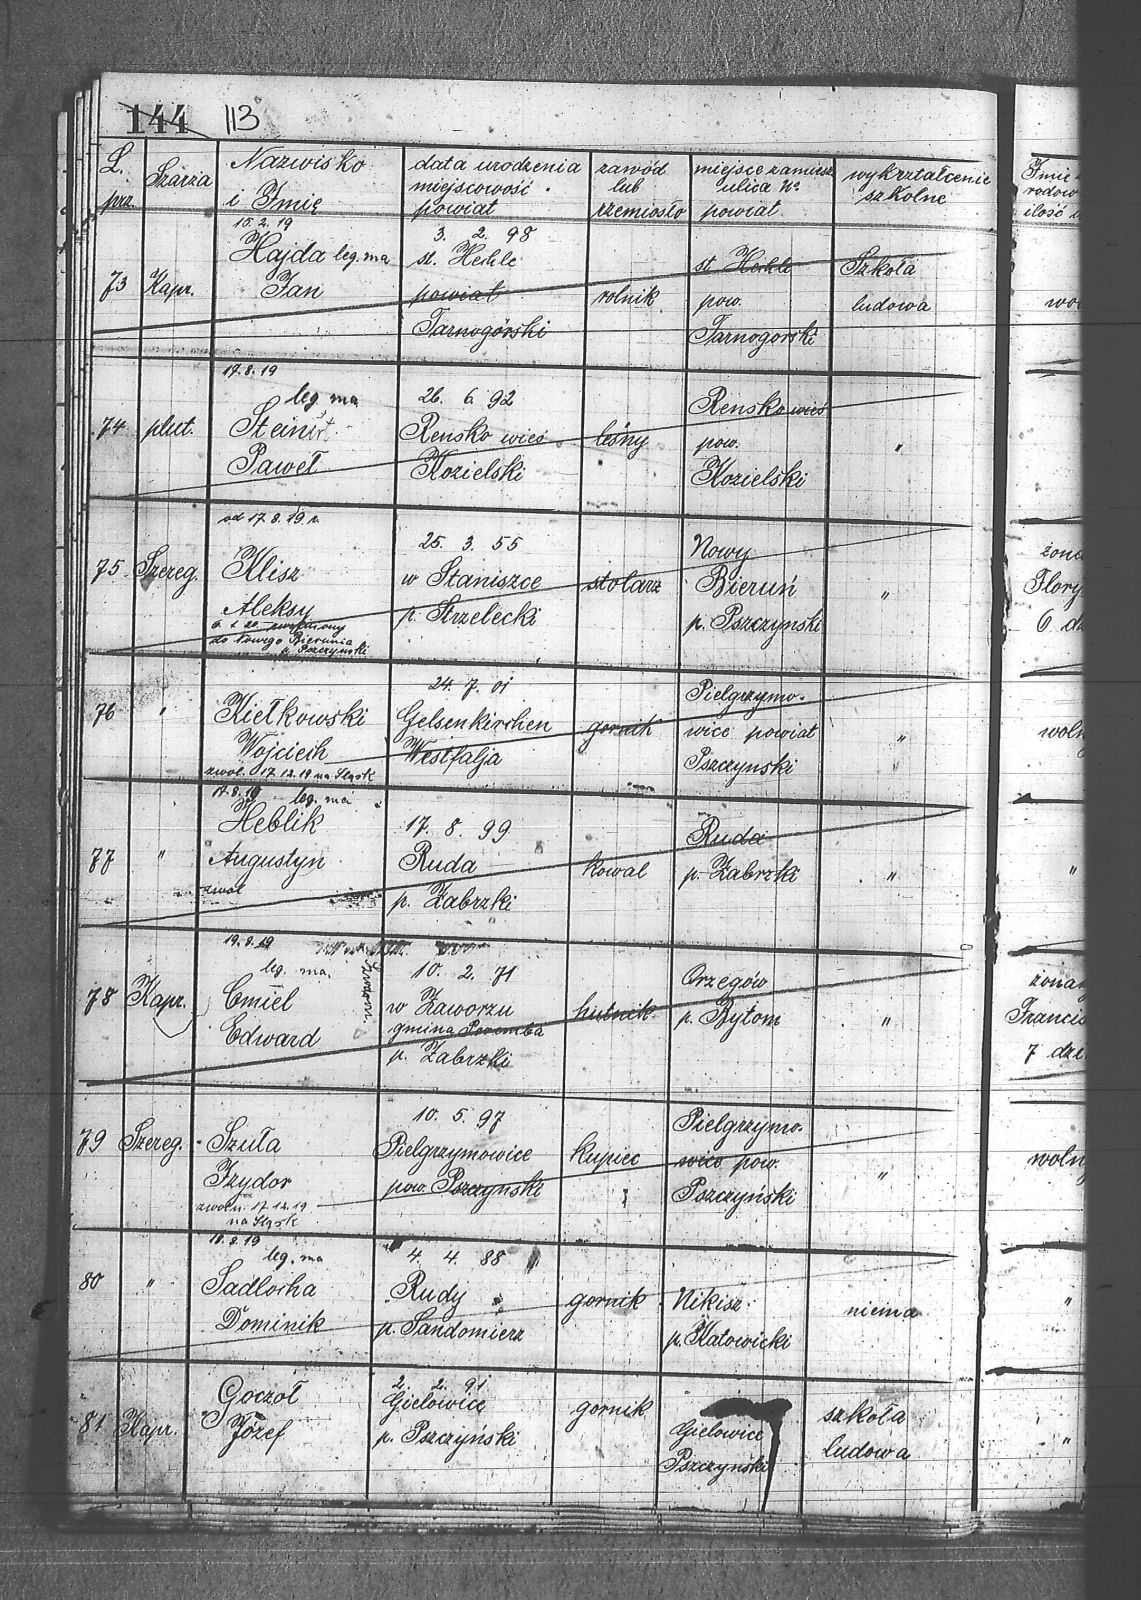 144 113
L. prz.
Szarża
Nazwisko
i Imię
data urodzenia
miejscowość
powiat
zawód
lub
rzemiosło
miejsce zamiesz.
ulica №
powiat
wykrztałcenie
szkolne
Imię
rodow
ilość
73
Kapr.
15.2.19
Hajda leg. ma
Jan
3. 2. 98
st. Hechle
powiat
Tarnogórski
rolnik
st Hechle
pow.
Tarnogorski
Szkoła
ludowa
74
plut.
17.8.19
leg. ma
Steinert
Paweł
26. 6. 92
Rensko wieś
Kozielski
leśny
Rensko wieś
pow.
Kozielski
"
75
Szereg.
od 17.8.19 r.
Klisz
Aleksy
6.1.20
do Nowego Bierunia
p. Pszczyński
25. 3. 55
w Staniszce
p. Strzelecki
stolarz
Nowy
Bieruń
p. Pszczyński
"
żona
Flory
6 dz
76
"
Kiełkowski
Wojciech
zwol. 17.12.19 na Śląsk
24. 7. 01
Gelsenkirchen
Westfalja
gornik
Pielgrzymo-
wice powiat
Pszczynski
"
woln
77
"
17.8.19 leg. ma
Heblik
Augustyn
zwol
17. 8. 99
Ruda
p. Zabrzki
kowal
Ruda
p. Zabrzki
"
"
78
Kapr.
19.8.19
leg. ma.
Cmiel
Edward
10. 2. 71
w Zaworzu
gmina Poremba
p. Zabrzki
hutnik
Orzegów
p. Bytom
"
żona
Francis
7 dzi
79
Szereg.
Szuła
Izydor
zwoln. 17.12.19
na Śląsk
10. 5. 97
Pielgrzymowice
pow. Pszczyński
kupiec
Pielgrzymo-
wice pow.
Pszczyński
"
woln
80
"
18.8.19
leg. ma
Sadlocha
Dominik
4. 4. 88
Rudy
p. Sandomierz
gornik
Nikisz
p. Katowicki
niema
"
81
Kapr.
Goczoł
Józef
2. 2. 91
Gielowice
p. Pszczyński
gornik
Gielowice
Pszczyński
szkoła
ludowa
"